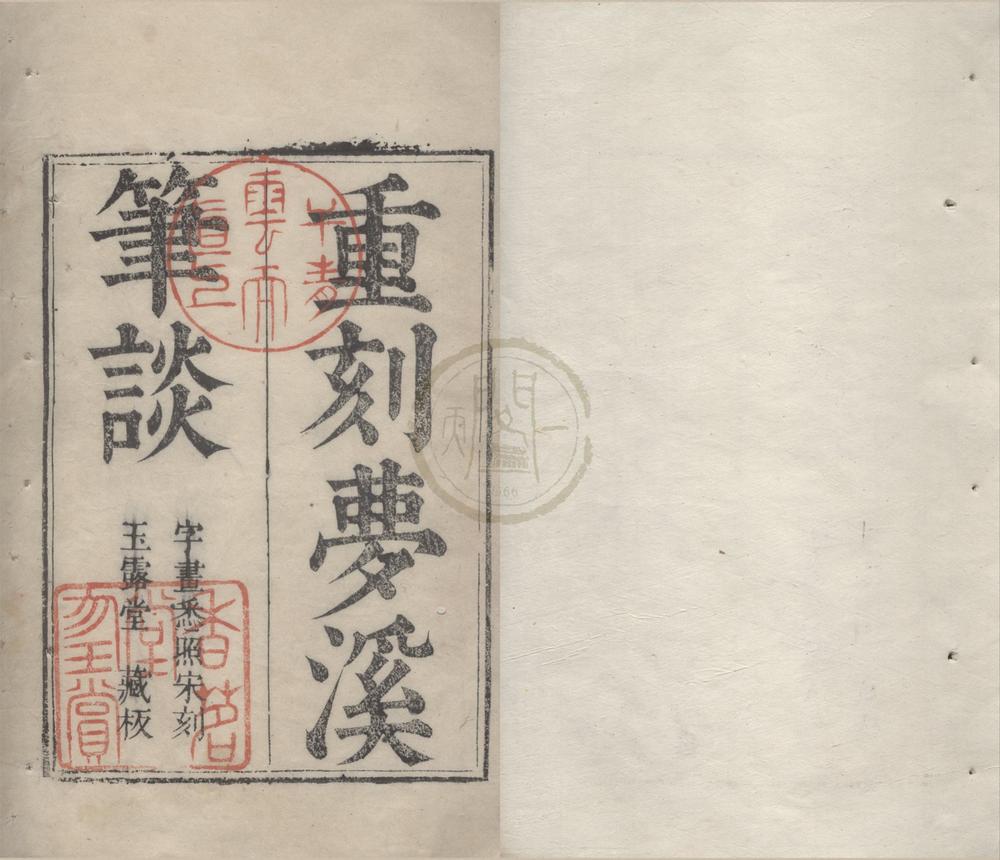 重刻夢溪
筆談
字畫悉照宋刻
玉露堂 藏板